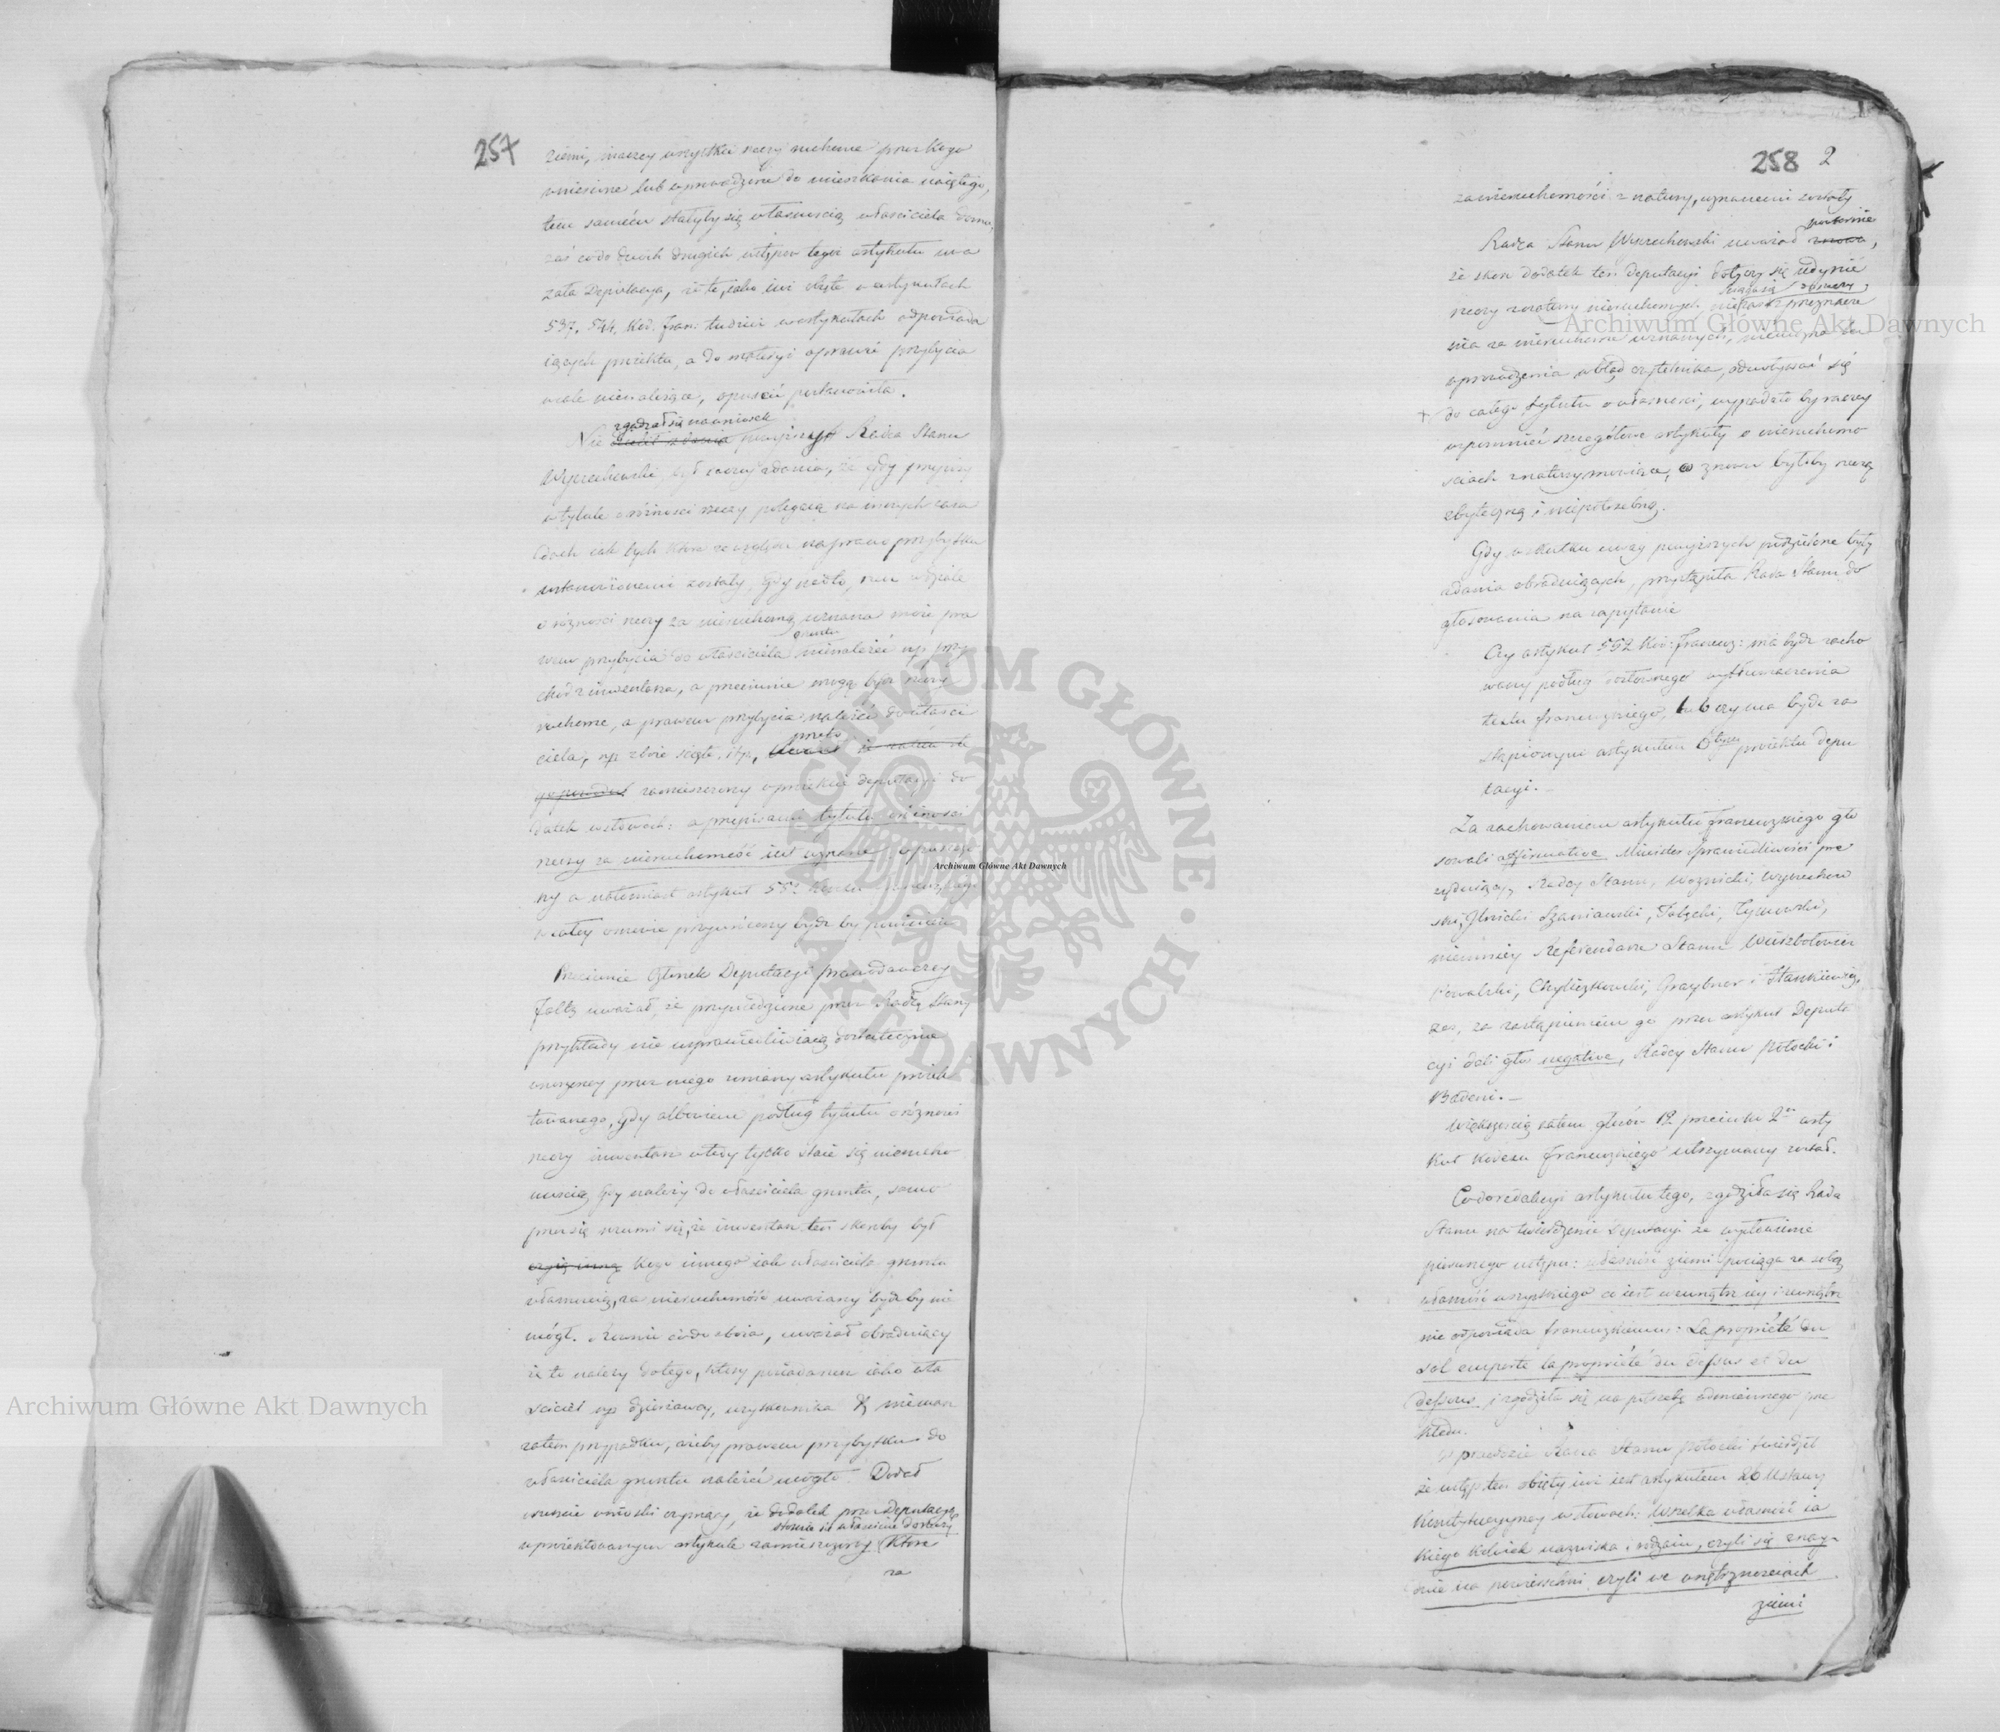 257
ziemi, inaczey wszystkie rzeczy ruchome przez kogo
wniesione lub wprowadzone do mieszkania naiętego,
tem samém stałyby się własnością właściciela domu,
zaś co do dwóch drugich ustępów tegoż artykułu uwa
żała Deputacya, że te, iako iuż obięte w artykułach
537, 544, Kod. fran: tudzież w artykułach odpowiada
iących proiektu, a do materyi o prawie przybycia
wcale nienależące, opuścić postanowiła.
zgadzał się na wniosek
Nie powyższy Radca Stanu
Wyczechowski, był raczey zdania, że gdy przepisy
w tytule o różności rzeczy polegaią na innych zasa
dach iak tych które ze względu na prawo przybytku
ustanowionemi zostały, gdy nadto, rzecz w dziale
o różności rzeczy za nieruchomą uznana może pra
gruntu
wem przybycia do właściciela nienależeć np. przy
chód z inwentarza, a przeciwnie mogą być rzeczy
ruchome, a prawem przybycia należeć do właści
przeto
ciela, np. zboże zżęte, itp,
zamieszczony w proiekcie deputacyi do
datek w słowach: a przepisami tytułu o różności
rzeczy za nieruchomość iest uznane, opuszczo
ny a natomiast artykuł 552 Kodexu francuzkiego
w całey osnowie przywrócony bydź by powinien
Przeciwnie Członek Deputacyi prawodawczey
Faltz uważał, że przywiedzione przez Radcę Stanu
przykłady nie usprawiedliwiaią dostatecznie
wnoszoney przez niego zmiany artykułu proiek
towanego, gdy albowiem podług tytułu o różności
rzeczy inwentarz wtedy tylko staie się nierucho
mością, gdy należy do właściciela gruntu, samo
przez się rozumie się, że inwentarz ten skoroby był
kogo innego iak właściciela gruntu
własnością, za nieruchomość uważany bydź by nie
mógł. Równie co do zboża, uważał obradujący
że to należy do tego, który posiada one iako wła
ściciel np dzierżawcy, użytkownika
zatem przypadku, ażeby prawem przybytku do
właściciela gruntu należeć mogło. Dodał
wreszcie wniosek czyniący, że dodatek przez Deputacyę
stosuie się właściwie do rzeczy
w proiektowanym artykule zamieszczony (które
za
258 2
za nieruchomości z natury uznanemi zostały
powtórnie
Radca Stanu Wyczechowski uważał,
że skoro dodatek ten deputacyi dotyczy się iedynie
rzeczy z natury nieruchomych, przeznacze
nia za nieruchome uznanych, niemożna bez
wprowadzenia w błąd czytelnika, odwoływać się
do całego tytułu o własności, wypadało by raczey
wspomnieć szczegółowe artykuły o nieruchomo
ściach z natury mówiące, co znowu byłoby rzeczą
zbyteczną i niepotrzebną.
Gdy w skutku uwag powyższych podzielone były
zdania obraduiących, przystąpiła Rada Stanu do
głosowania na zapytanie
Czy artykuł 552 Kod: francuz: ma bydź zacho
wany podług dosłownego wytłumaczenia
textu francuzkiego, lub czy ma bydź za
stąpionym artykułem proiektu depu
tacyi. –
Za zachowaniem artykułu francuzkiego gło
sowali affirmative Minister Sprawiedliwości pre
zyduiący, Radcy Stanu, Woźnicki, Wyczechow
ski, Szaniawski, Tymowski,
niemniey Referendarze Stanu
Kowalski, Chyliczkowski, Graybner i Stankiewicz,
zaś, za zastąpieniem go przez artykuł Deputa
cyi dali głos negative, Radcy Stanu Potocki i
Badeni. –
Większością zatem głosów 12 przeciwko 2 arty
kuł Kodexu francuzkiego utrzymany został.
Co do redakcyi artykułu tego, zgodziła się Rada
Stanu na twierdzenie Deputacyi że wysłowienie
pierwszego ustępu: własność ziemi pociąga za sobą
własność wszystkiego co iest wewnątrz iey i zewnątrz
nie odpowiada francuzkiemu: La propriété du
sol emporte la propriété du dessus et du
dessous i zgodziła się na potrzebę odmiennego prze
kładu.
W prawdzie Radca Stanu Potocki twierdził
że ustęp ten obięty iuż iest artykułem 26 Ustawy
Konstytucyyney w słowach: wszelka własność ia
kiego kolwiek nazwiska i rodzaiu, czyli się znay-
duie na powierzchni, czyli we wnętrznościach
ziemi
Archiwum Główne Akt Dawnych
Archiwum Główne Akt Dawnych
Archiwum Główne Akt Dawnych
ARCHIWUM GŁÓWNE · AKT DAWNYCH ·